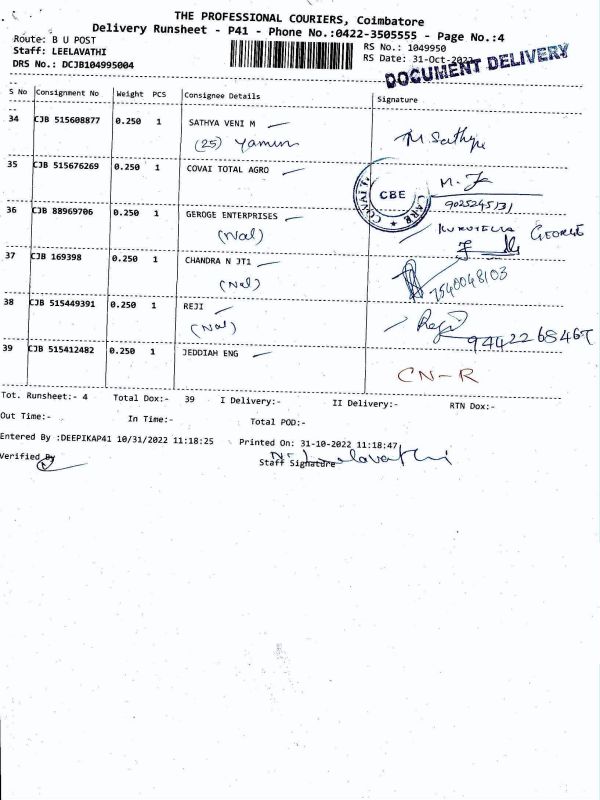 THE PROFESSIONAL COURIERS, Coimbatore
Delivery Runsheet - P41 - Phone No.:0422-3505555 - Page No.:4
Route: B U POST
RS No.: 1049950
Staff: LEELAVATHI
RS Date: 31-Oct-2022
DRS No.: DCJB104995004
DOCUMENT DELIVERY
S No Consignment No Weight PCS Consignee Details Signature
34 CJB 515608877 0.250 1 SATHYA VENI M
(25) Yamini M. Sathya
35 CJB 515676269 0.250 1 COVAI TOTAL AGRO
COVAI T. CBE
9025245131
36 CJB 88969706 0.250 1 GEROGE ENTERPRISES
(Nal) KURUVILLA GEORGE
37 CJB 169398 0.250 1 CHANDRA N JT1
(Nal) 7540048103
38 CJB 515449391 0.250 1 REJI
(Nal) Reji 9442268467
39 CJB 515412482 0.250 1 JEDDIAH ENG
CN-R
Tot. Runsheet:- 4 Total Dox:- 39 I Delivery:- II Delivery:- RTN Dox:-
Out Time:- In Time:- Total POD:-
Entered By :DEEPIKAP41 10/31/2022 11:18:25 Printed On: 31-10-2022 11:18:47
Verified By Staff Signature N. Leelavathi